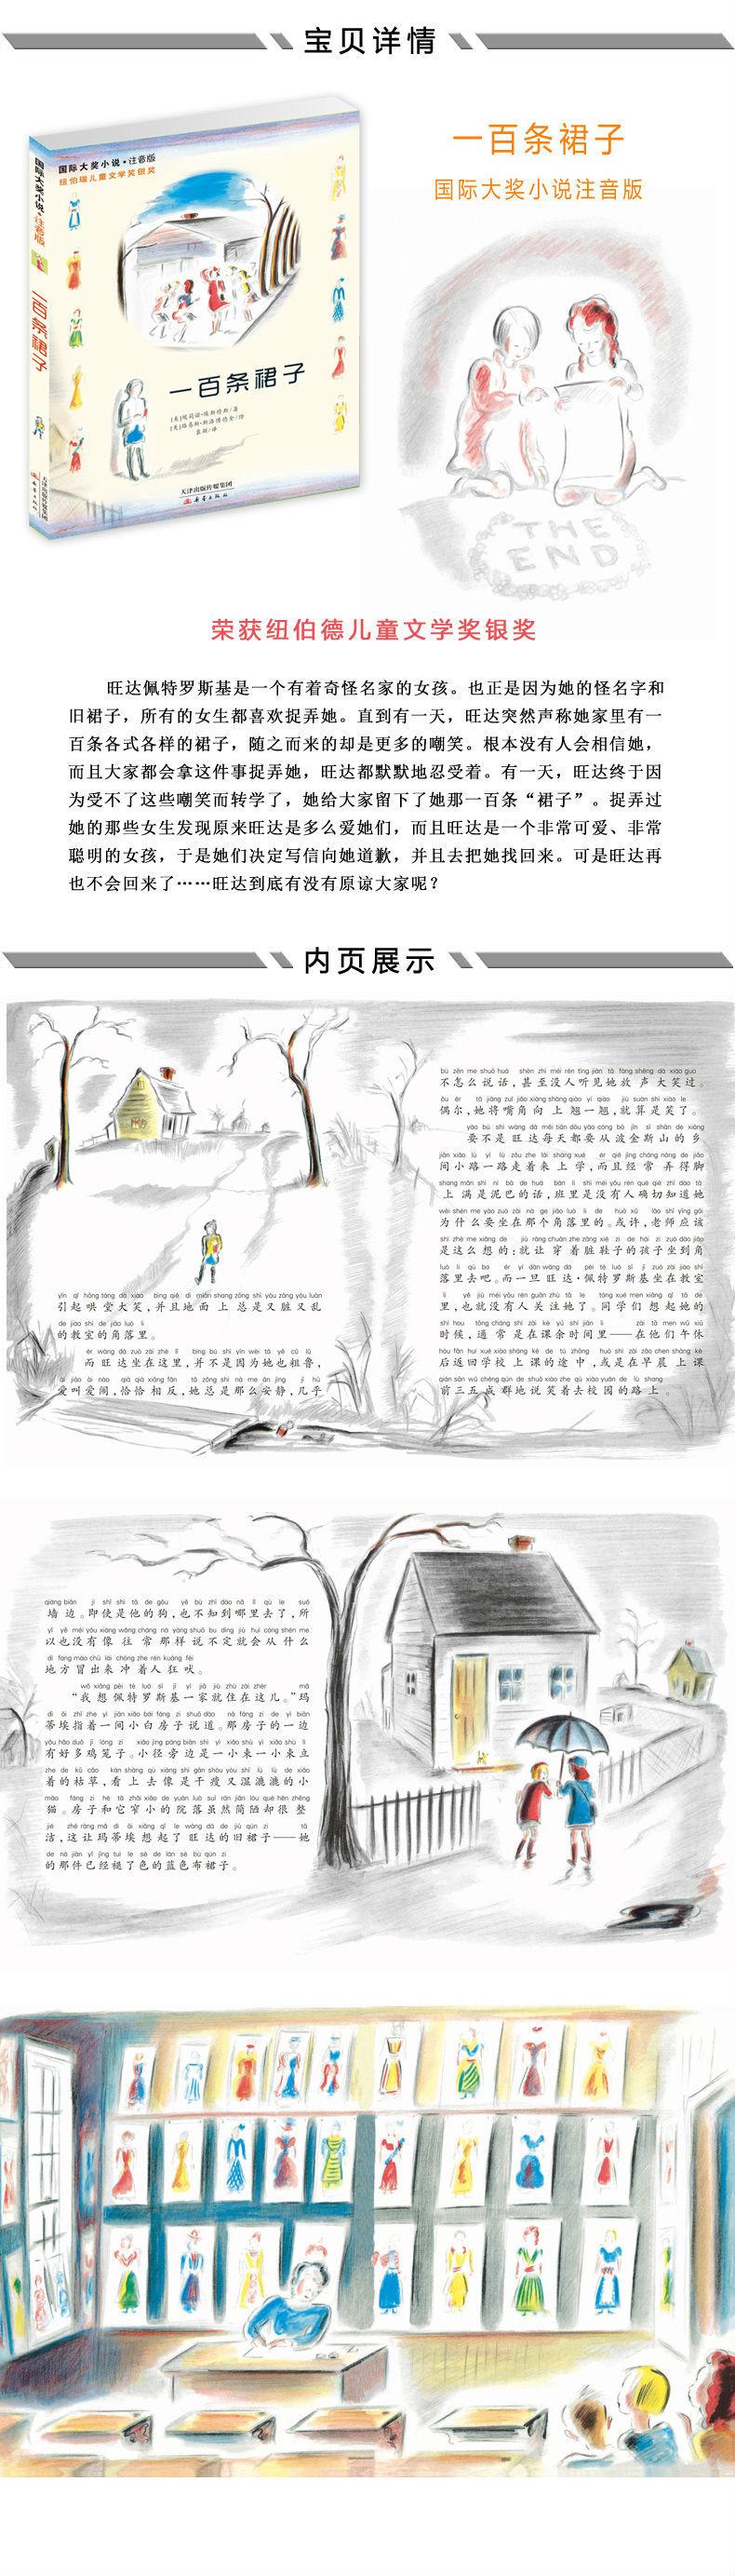 宝贝详情
国际大奖小说·注音版
纽伯瑞儿童文学奖银奖
国际大奖小说·注音版
一百条裙子
一百条裙子
[美]埃莉诺·埃斯特斯/著
[美]路易斯·斯洛博德金/绘
袁颖/译
天津出版传媒集团
新蕾出版社
一百条裙子
国际大奖小说注音版
THE
END
荣获纽伯德儿童文学奖银奖
旺达佩特罗斯基是一个有着奇怪名家的女孩。也正是因为她的怪名字和
旧裙子，所有的女生都喜欢捉弄她。直到有一天，旺达突然声称她家里有一
百条各式各样的裙子，随之而来的却是更多的嘲笑。根本没有人会相信她，
而且大家都会拿这件事捉弄她，旺达都默默地忍受着。有一天，旺达终于因
为受不了这些嘲笑而转学了，她给大家留下了她那一百条“裙子”。捉弄过
她的那些女生发现原来旺达是多么爱她们，而且旺达是一个非常可爱、非常
聪明的女孩，于是她们决定写信向她道歉，并且去把她找回来。可是旺达再
也不会回来了……旺达到底有没有原谅大家呢？
内页展示
引起哄堂大笑，并且地面上总是又脏又乱
的教室的角落里。
而旺达坐在这里，并不是因为她也粗鲁，
爱叫爱闹，恰恰相反，她总是那么安静，几乎
不怎么说话，甚至没人听见她放声大笑过。
偶尔，她将嘴角向上翘一翘，就算是笑了。
要不是旺达每天都要从波金斯山的乡
间小路一路走着来上学，而且经常弄得脚
上满是泥巴的话，班里是没有人确切知道她
为什么要坐在那个角落里的。或许，老师应该
是这么想的：就让穿着脏鞋子的孩子坐到角
落里去吧。而一旦旺达·佩特罗斯基坐在教室
里，也就没有人关注她了。同学们想起她的
时候，通常是在课余时间里——在他们午休
后返回学校上课的途中，或是在早晨上课
前三五成群地说笑着去校园的路上。
墙边。即使是他的狗，也不知到哪里去了，所
以也没有像往常那样说不定就会从什么
地方冒出来冲着人狂吠。
“我想佩特罗斯基一家就住在这儿。”玛
蒂埃指着一间小白房子说道。那房子的一边
有好多鸡笼子。小径旁边是一小束一小束立
着的枯草，看上去像是干瘦又湿漉漉的小
猫。房子和它窄小的院落虽然简陋却很整
洁，这让玛蒂埃想起了旺达的旧裙子——她
的那件已经褪了色的蓝色布裙子。